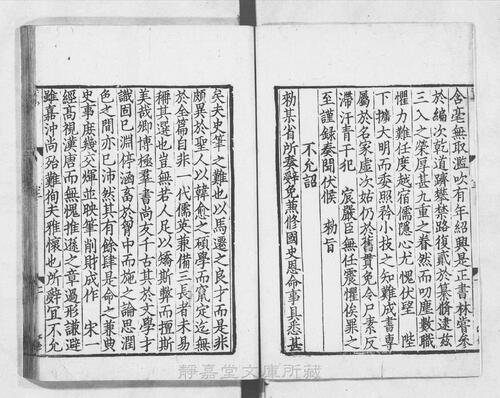 含毫無取濫吹有年紹興是正書林嘗叅
於編次乾道躋攀禁路復貳於纂脩逮茲
三入之榮厚甚九重之眷然而叨塵數職
懼力難任度越宿儒隱心尤愧伏望 陛
下擴大明而委照矜小技之知難成書專
屬於名家虛次姑仍於舊貫免令尸素反
滯汗青干犯 宸嚴臣無任震懼俟罪之
至謹録奏聞伏候 勑旨
不允詔
勑某省所奏辭免兼修國史恩命事具悉甚
矣夫史筆之難也以馬遷之良才而是非
頗異於聖人以韓愈之碩學而竄定迄無
於全篇自非一代儒英兼備三長者未易
稱其選也豈無若人足以矯斯弊而擅斯
美哉卿博極羣書尚友千古其於文學才
識固已淵停涵畜於胷中而施之論思潤
色之間亦已沛然其有餘肆是命之兼典
史事庶幾交煇並映筆削財成作 宋一
經高視漢唐而無愧推遜之章過形謙避
雖嘉沖尚殆難徇夫雅懷也所辭宜不允
靜嘉堂文庫所藏